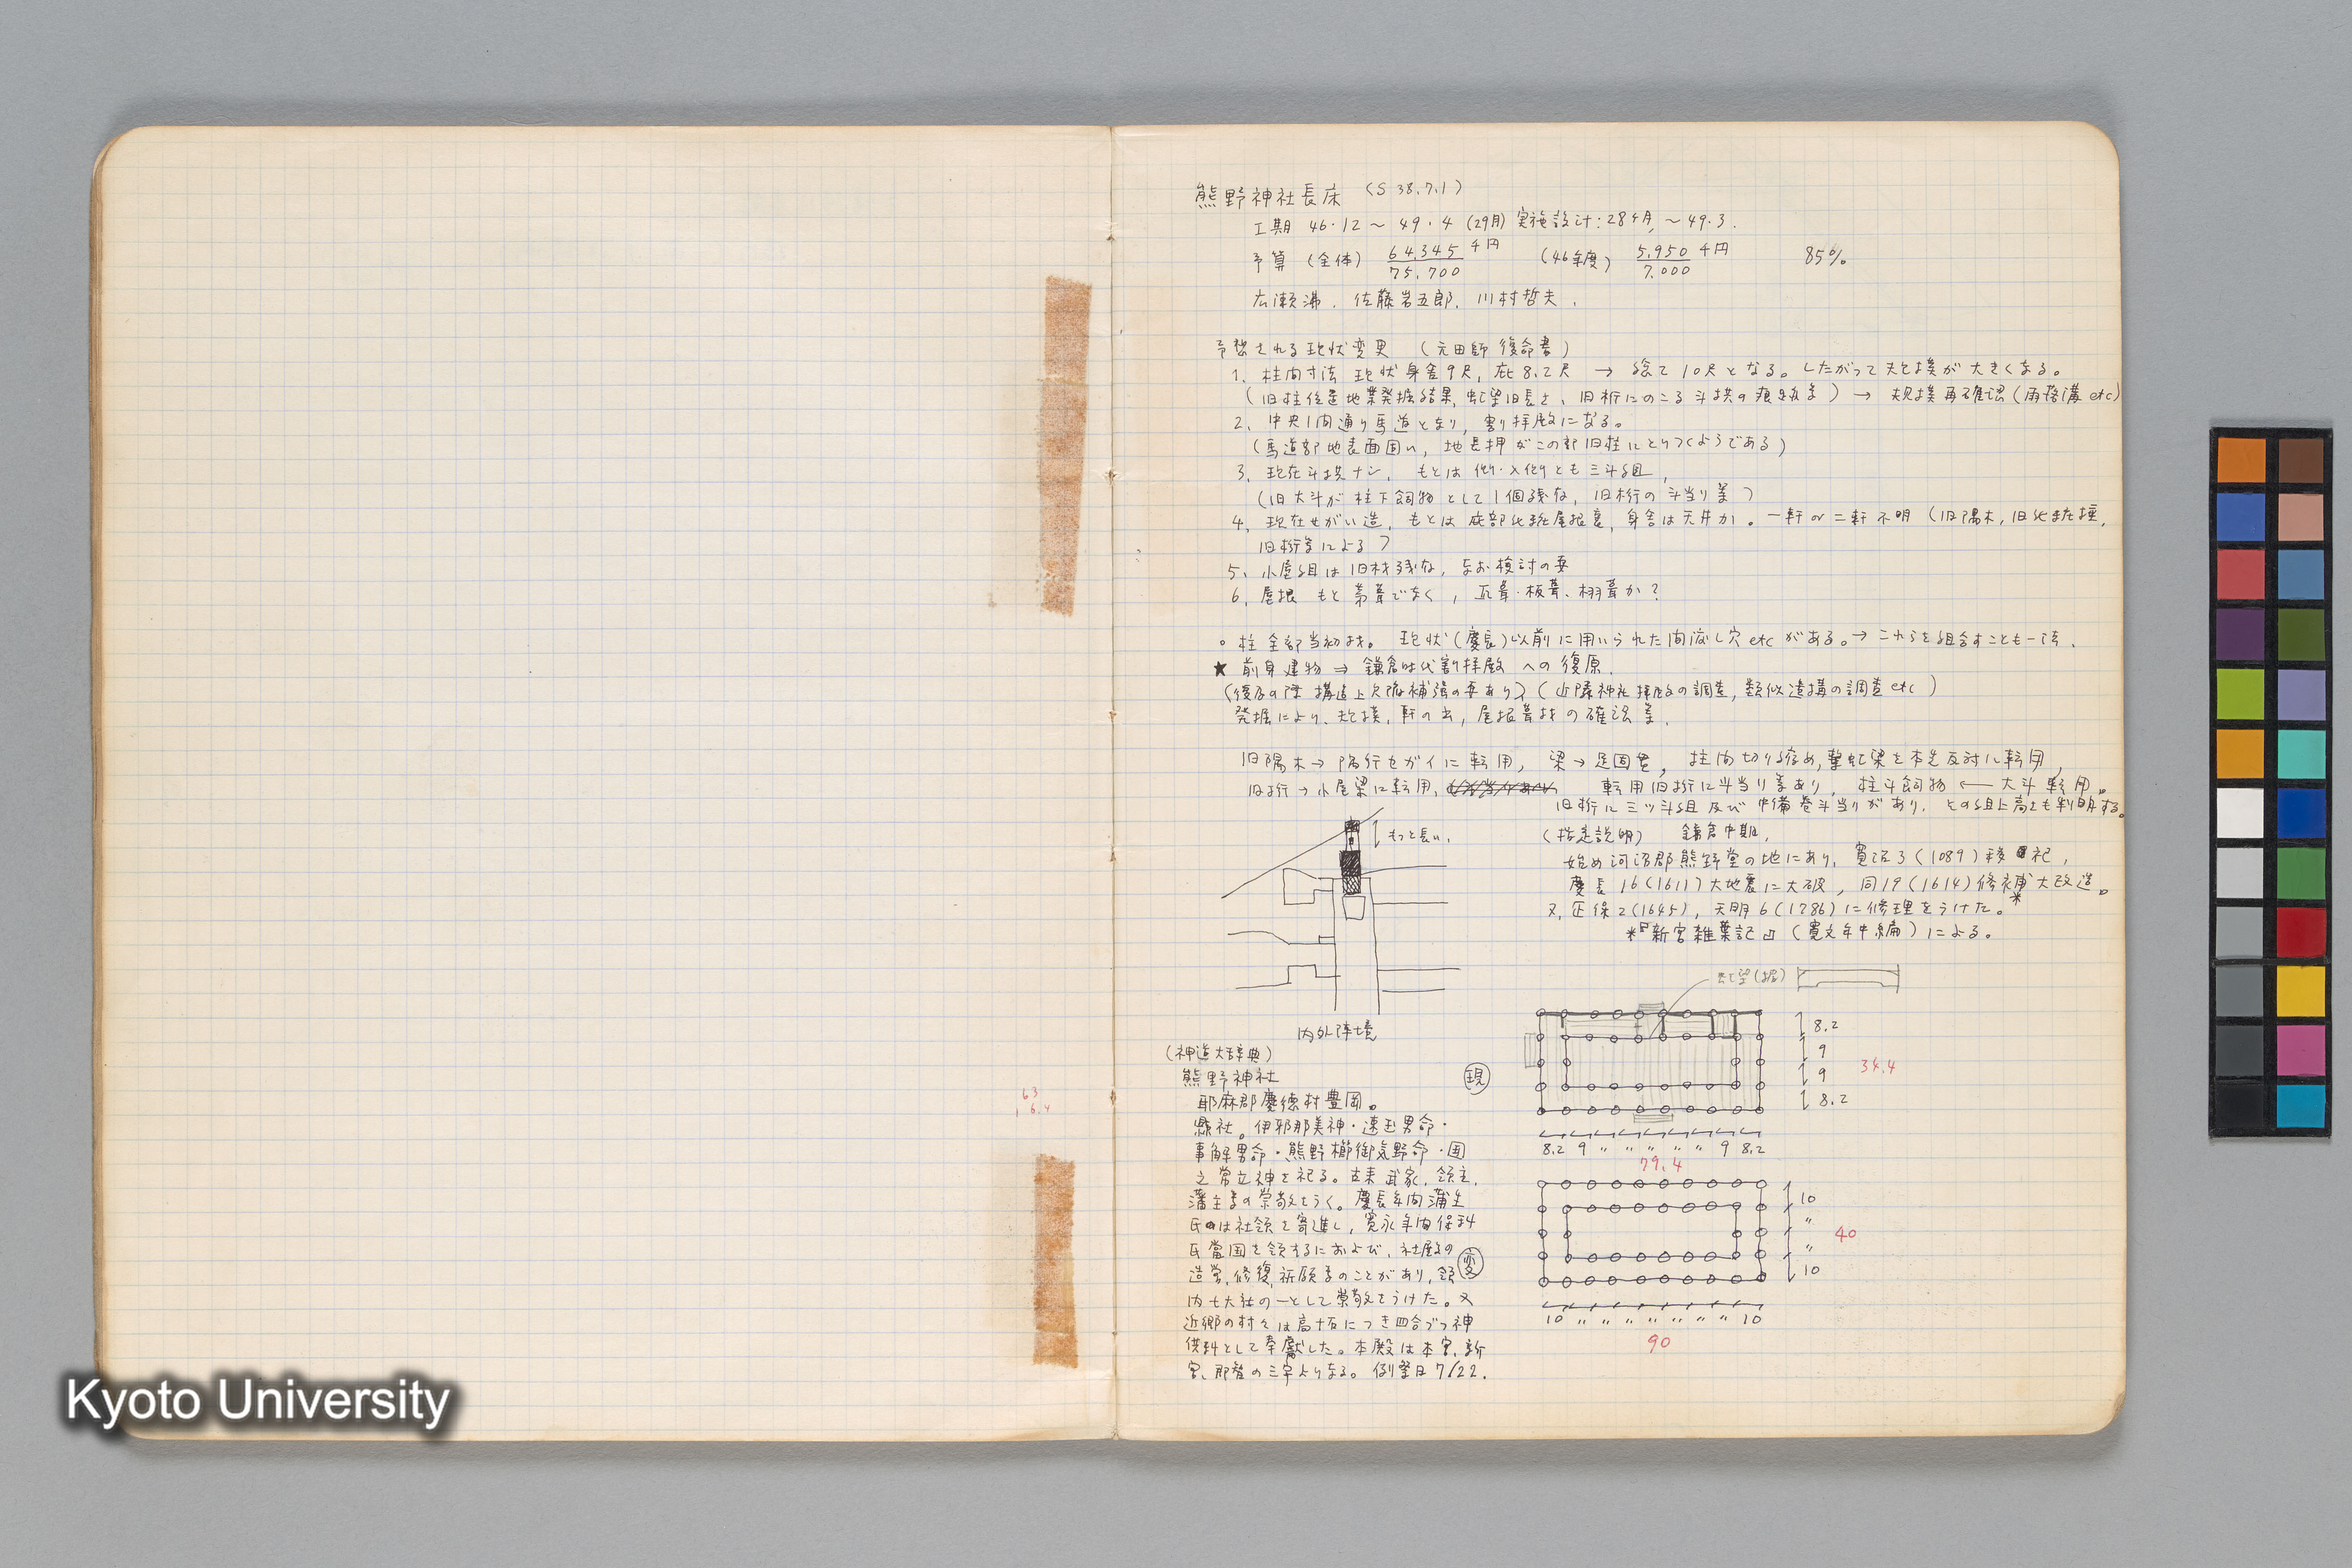 熊野神社長床 (S 38.7.1)
工期 46.12 ~ 49.4 (29月) 実施設計: 28ヶ月, ~ 49.3.
予算 (全体) 64,345千円 / 75,700 (46年度) 5,950千円 / 7,000 85%
広瀬沸. 佐藤岩五郎. 川村哲夫.
予想される現状変更 (元田師 復命書)
1. 柱間寸法 現状身舎9尺, 庇8.2尺 → 総て10尺となる。したがって規模が大きくなる。
(旧柱位置地業発掘結果, 虹梁旧長さ, 旧桁にのこる斗栱の痕跡等) → 規模再確認(雨落溝 etc)
2. 中央1間通り馬道となり, 割り拝殿になる。
(馬道部地表面固い, 地長押がこの部旧柱にとりつくようである)
3. 現在斗栱ナシ. もとは側・入側とも三斗組,
(旧大斗が柱下飼物として1個残存, 旧桁の斗当り差)
4. 現在せがい造, もとは庇部化粧屋根裏, 身舎は天井か。一軒 or 二軒不明 (旧隅木, 旧化粧垂木,
旧桁等による)
5. 小屋組は旧材残存, なお検討の要
6. 屋根 もと茅葺でなく, 瓦葺・板葺、栩葺か?
○ 柱全部当初材。 現状(慶長)以前に用いられた間渡し穴 etc がある。→ これらを組合すことも一法.
★ 前身建物 ⇒ 鎌倉時代割拝殿への復原.
(復原の際 構造上欠陥補強の要あり) (近隣神社拝殿の調査, 類似遺構の調査 etc)
発掘により, 規模, 軒の出, 屋根葺材の確認等.
旧隅木 → 隅行セガイに転用, 梁 → 足固貫, 柱間切り縮め, 繋虹梁を本先反対に転用,
旧桁 → 小屋梁に転用, 転用旧桁に斗当り差あり, 柱斗飼物 ← 大斗転用。
旧桁に三ツ斗組及び中備巻斗当りがあり. その組上高さも判明する。
もっと長い.
(指定説明) 鎌倉中期.
始め河沼郡熊野堂の地にあり, 寛治3(1089)移祀,
慶長16(1611)大地震に大破, 同19(1614)修補大改造。*
又, 正保2(1645), 天明6(1786)に修理をうけた。
*『新宮雑葉記』(寛文年中編)による。
内外陣境
(神道大辞典)
熊野神社
耶麻郡慶徳村豊岡。
県社。伊邪那美神・速玉男命・
事解男命・熊野櫛御気野命・国
之常立神を祀る。古来武家, 領主,
藩主等の崇敬をうく。慶長年間蒲生
氏は社領を寄進し, 寛永年間保科
氏當国を領するにおよび, 社殿の
造営, 修復, 祈願等のことがあり, 領
内七大社の一として崇敬をうけた。又
近郷の村々は高十石につき四合づつ神
供料として奉献した。本殿は本宮, 新
宮, 那智の三宇よりなる。例祭日7/22.
虹梁(据)
現
8.2
9
9
8.2
34.4
8.2 9 〃 〃 〃 〃 〃 9 8.2
79.4
変
10
〃
〃
10
40
10 〃 〃 〃 〃 〃 〃 〃 10
90
63
16.4
Kyoto University